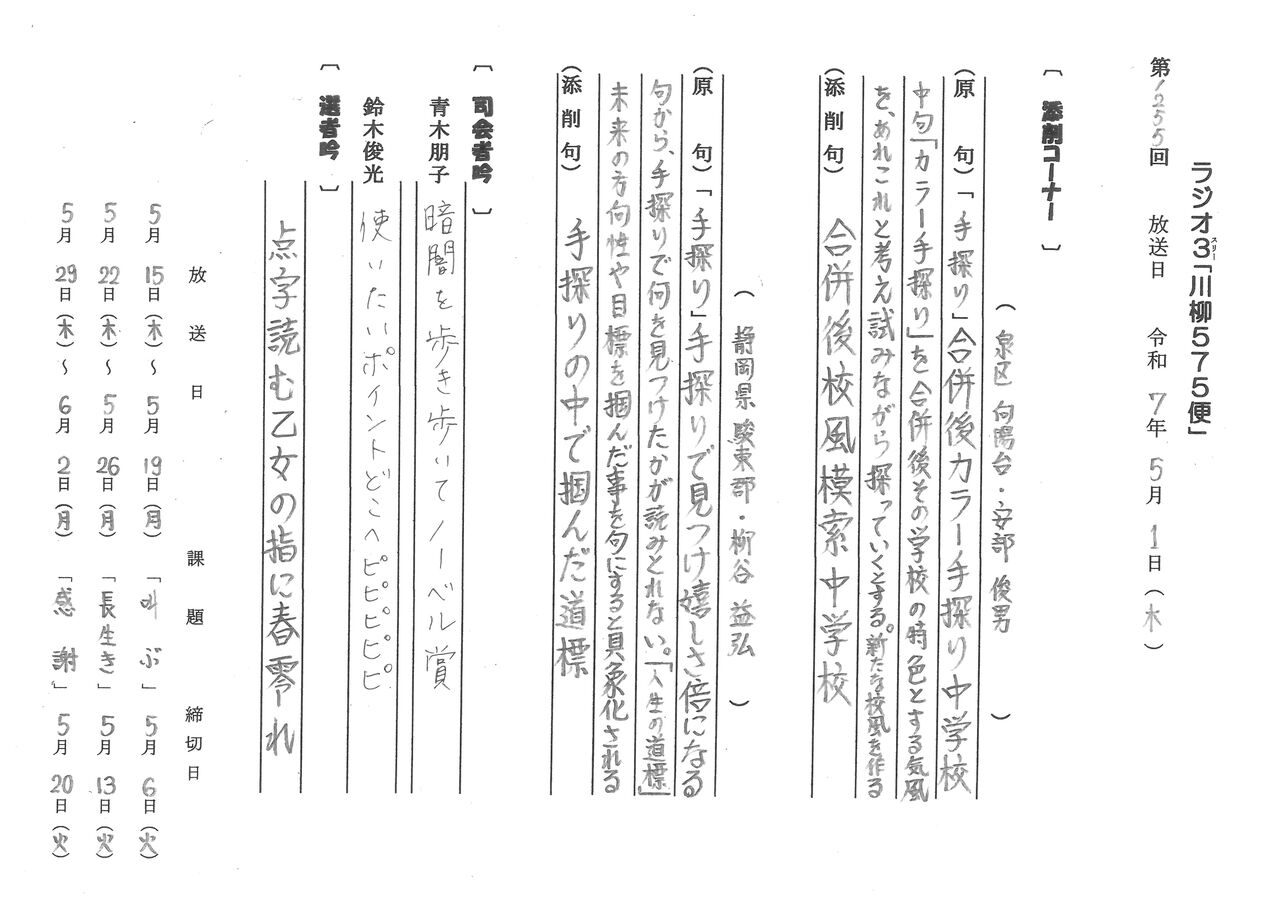 ラジオ3「川柳575便」
スリー
第1255回 放送日 令和 7年 5月 1日(木)
〔 添削コーナー 〕
( 泉区 向陽台・安部 俊男 )
(原 句)「手探り」合併後カラー手探り中学校
中句「カラー手探り」を合併後その学校の特色とする気風
を、あれこれと考え試みながら探っていくとする。新たな校風を作る
(添削句) 合併後校風模索中学校
( 静岡県 駿東郡・柳谷 益弘 )
(原 句)「手探り」手探りで見つけ嬉しさ倍になる
句から、手探りで何を見つけたかが読みとれない。「人生の道標」
未来の方向性や目標を掴んだ事を句にすると具象化される
(添削句) 手探りの中で掴んだ道標
〔 司会者吟 〕
青木朋子 暗闇を歩き歩いてノーベル賞
鈴木俊光 使いたいポイントどこへピピピピピ
〔 選者吟 〕
点字読む乙女の指に春零れ
放送日 課題 締切日
5月 15日(木)〜 5月 19日(月) 「叫ぶ」 5月 6日(火)
5月 22日(木)〜 5月 26日(月) 「長生き」 5月 13日(火)
5月 29日(木)〜 6月 2日(月) 「感謝」 5月 20日(火)